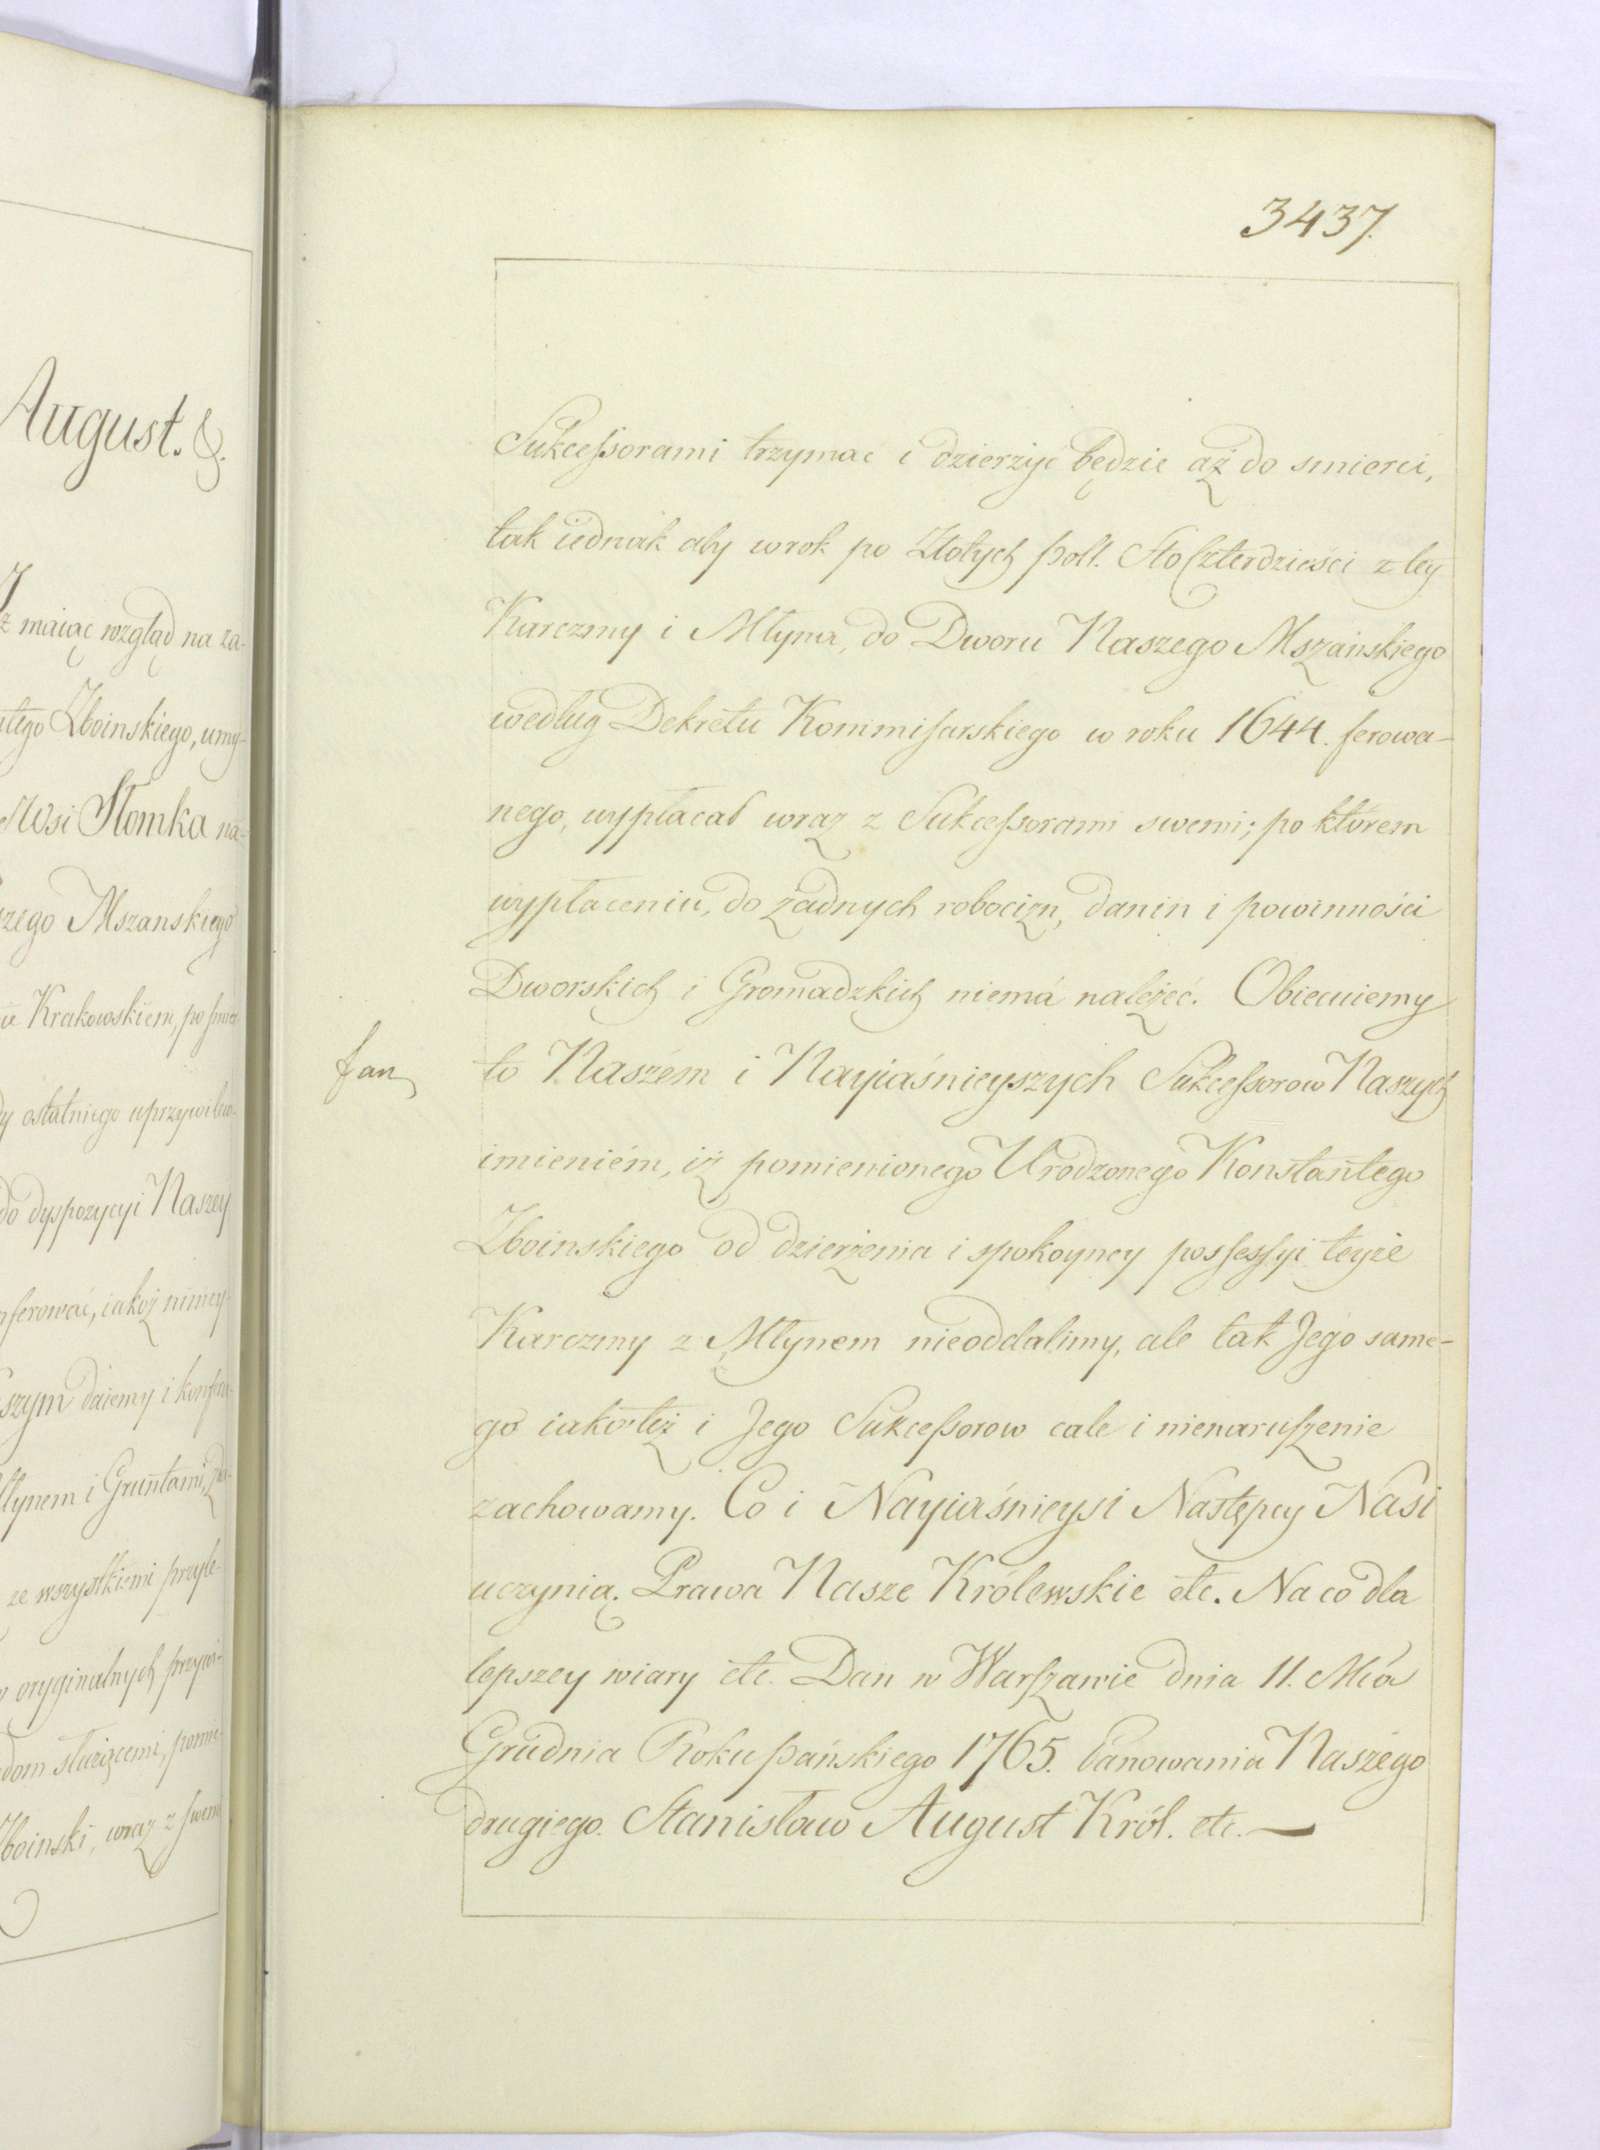 August. &.
ż maiąc wzgląd na za-
Zboinskiego, umy-
Wsi Słomka na-
szego Mszanskiego
Krakowskiém, po
ostatniego uprzywilew.
do dyspozycyi Naszey
ferować, iakoż niniey-
szym daiemy i
Młynem i Gruntami,
ze wszystkiemi przyle-
oryginalnych przywi-
służącemi,
Zboinski, wraz z swem
3437.
Sukcessorami trzymać i dzierżyć będzie aż do smierci,
tak iednak aby w rok po Złotych poll. Sto Czterdzieści z tey
Karczmy i Młyna, do Dworu Naszego Mszańskiego
według Dekretu Kommisarskiego w roku 1644. ferowa-
nego, wypłacał wraz z Sukcessorami swemi; po którem
wypłaceniu, do żadnych robocizn, danin i powinności
Dworskich i Gromadzkich niemá należeć. Obiecuiemy
fan
to Naszém i Nayiaśnieyszych Sukcessorow Naszych
imieniém, iż pomienionego Urodzonego Konstantego
Zboinskiego od dzierżenia i spokoyney possessyi teyże
Karczmy z Młynem nieoddalimy, ale tak Jego same-
go iako też i Jego Sukcessorow cale i nienaruszenie
zachowamy. Co i Nayiaśnieysi Następcy Nasi
uczynią. Prawa Nasze Królewskie etc. Na co dla
lepszey wiary etc. Dan w Warszawie dnia 11. Mca
Grudnia Roku pańskiego 1765. Panowania Naszégo
drugiego. Stanisław August Król. etc. —